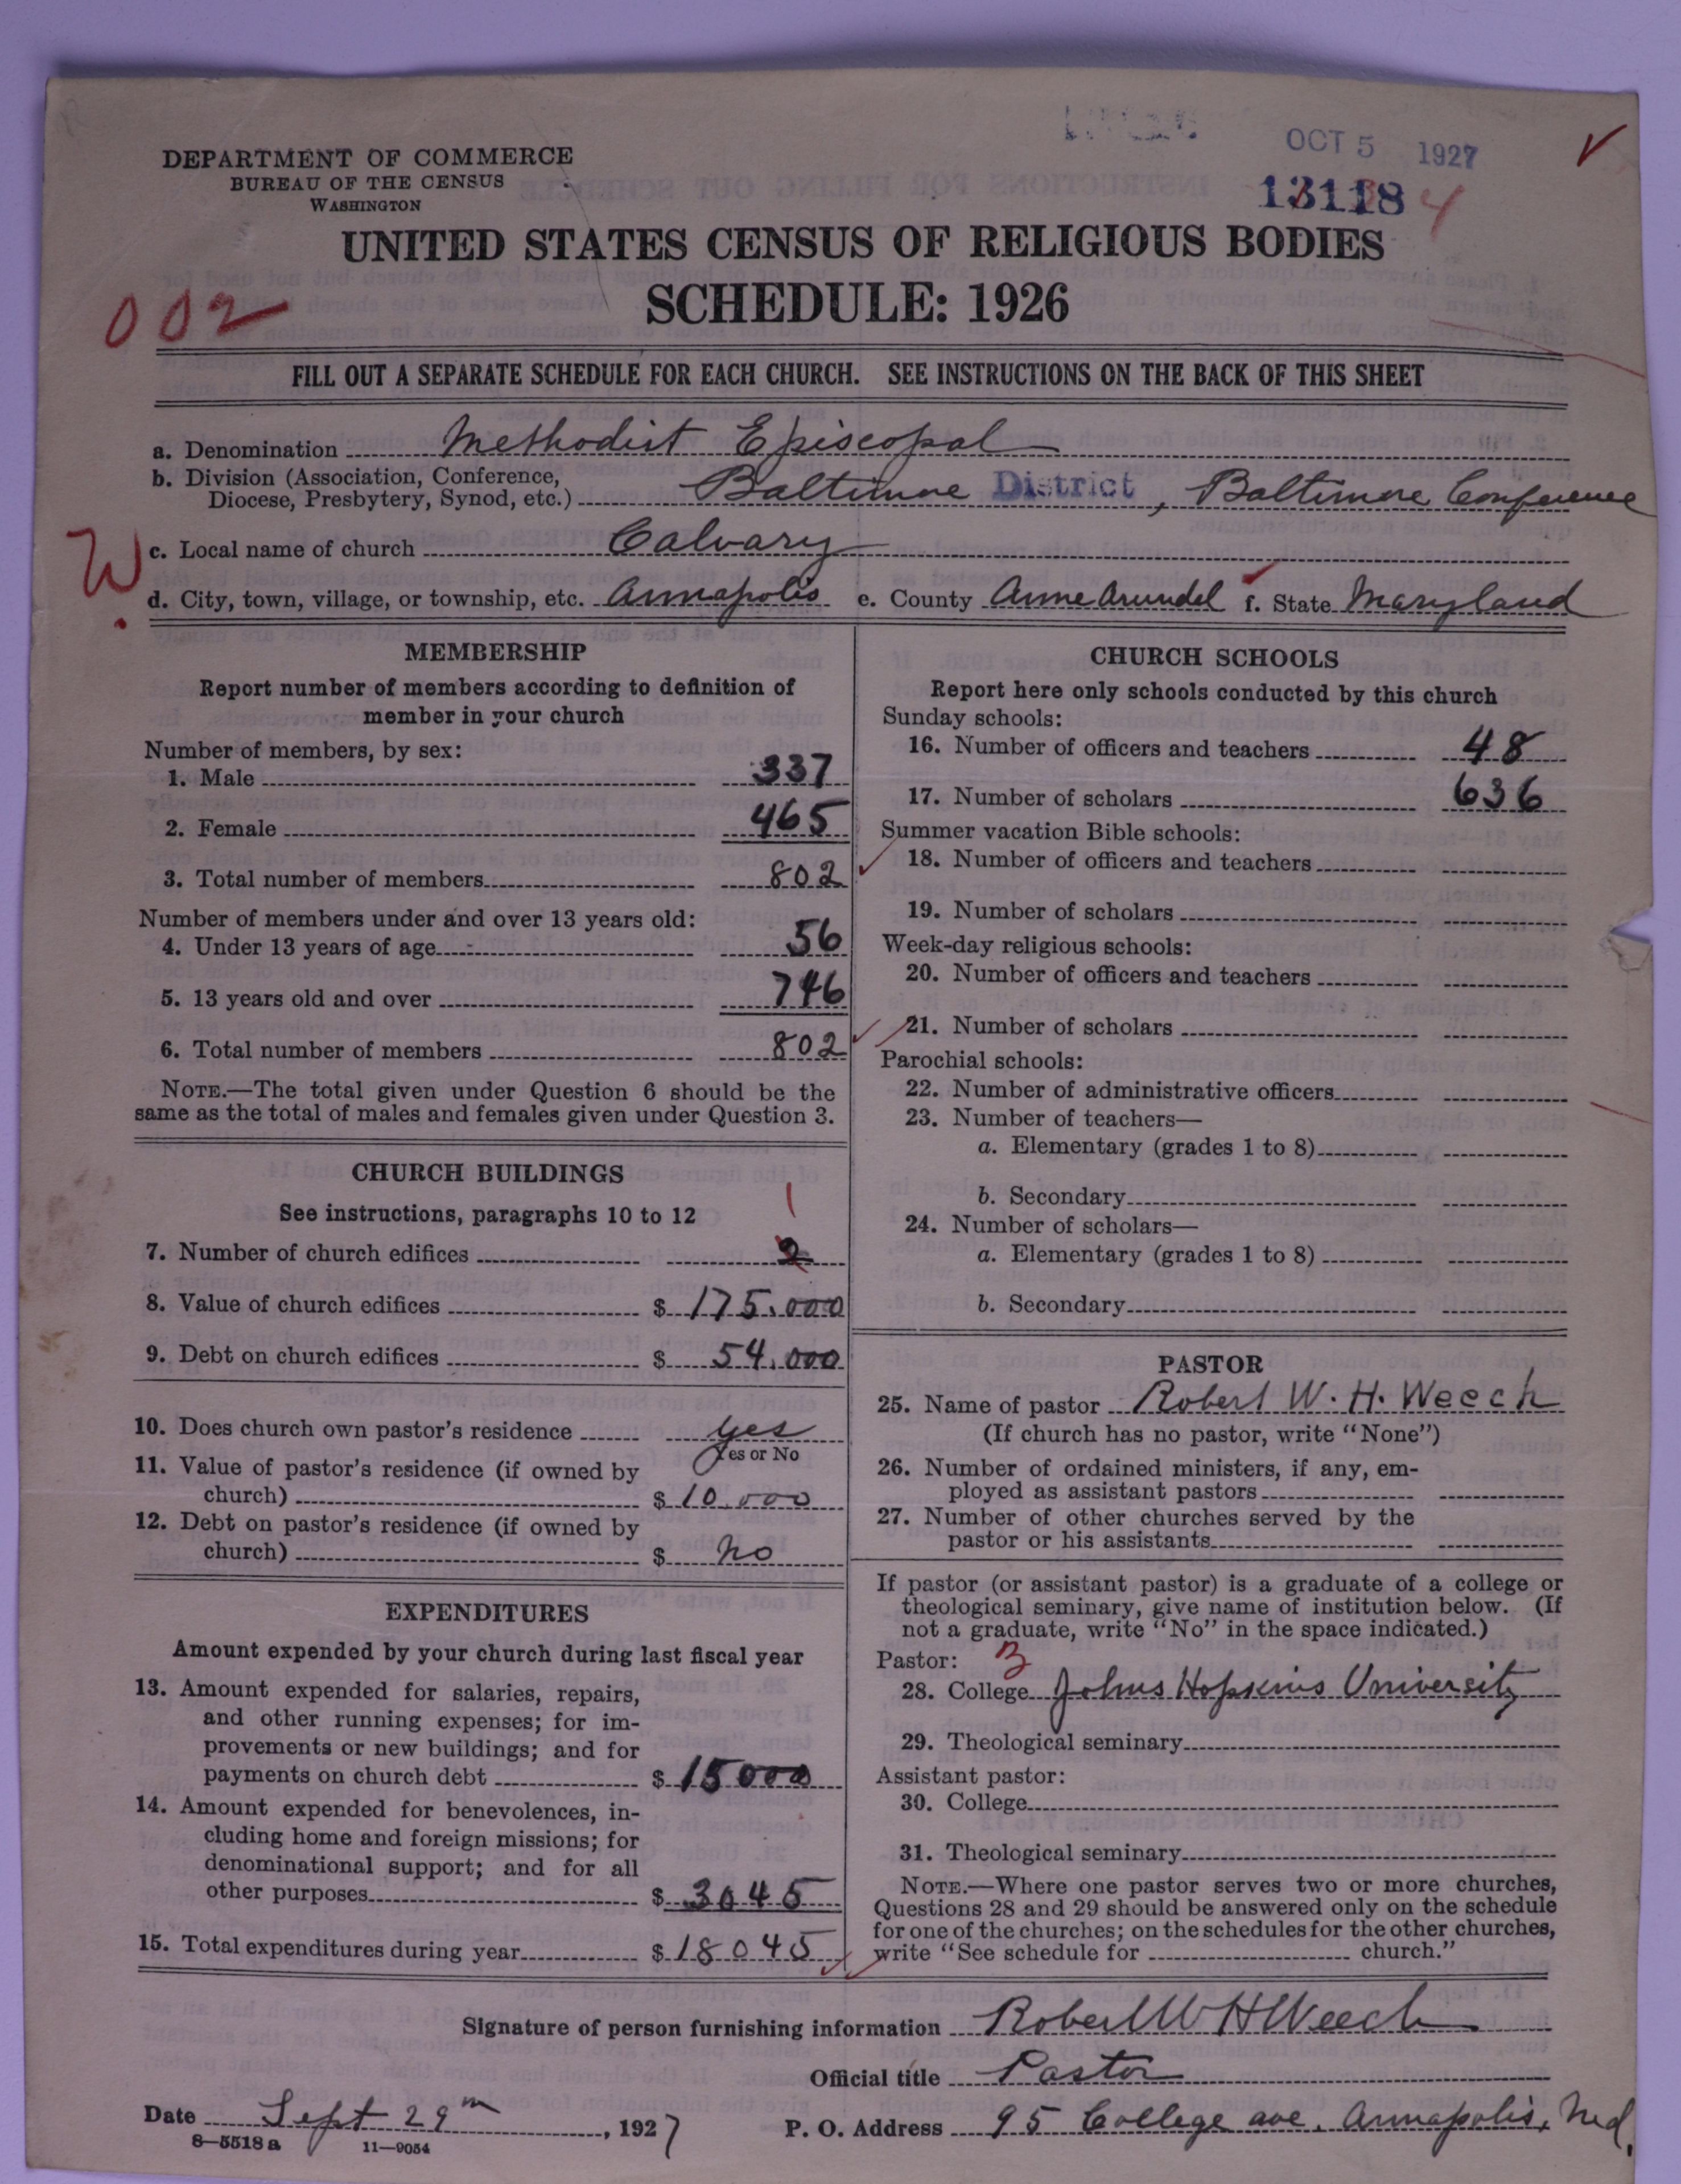 OCT 5 1927
13118 4
DEPARTMENT OF COMMERCE
BUREAU OF THE CENSUS
WASHINGTON
UNITED STATES CENSUS OF RELIGIOUS BODIES
SCHEDULE: 1926
002
FILL OUT A SEPARATE SCHEDULE FOR EACH CHURCH. SEE INSTRUCTIONS ON THE BACK OF THIS SHEET
a. Denomination Methodist Episcopal
b. Division (Association, Conference,
Diocese, Presbytery, Synod, etc.) Baltimore District, Baltimore Conference
W
c. Local name of church Calvary
d. City, town, village, or township, etc. Annapolis e. County Anne Arundel f. State Maryland
MEMBERSHIP
Report number of members according to definition of
member in your church
Number of members, by sex:
1. Male 337
2. Female 465
3. Total number of members 802
Number of members under and over 13 years old:
4. Under 13 years of age 56
5. 13 years old and over 746
6. Total number of members 802
NOTE.—The total given under Question 6 should be the
same as the total of males and females given under Question 3.
CHURCH BUILDINGS
See instructions, paragraphs 10 to 12
1
7. Number of church edifices 2
8. Value of church edifices $ 175,000
9. Debt on church edifices $ 54,000
10. Does church own pastor's residence yes
Yes or No
11. Value of pastor's residence (if owned by
church) $ 10,000
12. Debt on pastor's residence (if owned by
church) $ no
EXPENDITURES
Amount expended by your church during last fiscal year
13. Amount expended for salaries, repairs,
and other running expenses; for im-
provements or new buildings; and for
payments on church debt $ 15000
14. Amount expended for benevolences, in-
cluding home and foreign missions; for
denominational support; and for all
other purposes $ 3045
15. Total expenditures during year $ 18045
CHURCH SCHOOLS
Report here only schools conducted by this church
Sunday schools:
16. Number of officers and teachers 48
17. Number of scholars 636
Summer vacation Bible schools:
18. Number of officers and teachers
19. Number of scholars
Week-day religious schools:
20. Number of officers and teachers
21. Number of scholars
Parochial schools:
22. Number of administrative officers
23. Number of teachers—
a. Elementary (grades 1 to 8)
b. Secondary
24. Number of scholars—
a. Elementary (grades 1 to 8)
b. Secondary
PASTOR
25. Name of pastor Robert W. H. Weech
(If church has no pastor, write "None")
26. Number of ordained ministers, if any, em-
ployed as assistant pastors
27. Number of other churches served by the
pastor or his assistants
If pastor (or assistant pastor) is a graduate of a college or
theological seminary, give name of institution below. (If
not a graduate, write "No" in the space indicated.)
Pastor: 3
28. College Johns Hopkins University
29. Theological seminary
Assistant pastor:
30. College
31. Theological seminary
NOTE.—Where one pastor serves two or more churches,
Questions 28 and 29 should be answered only on the schedule
for one of the churches; on the schedules for the other churches,
write "See schedule for church."
Signature of person furnishing information Robert W H Weech
Official title Pastor
Date Sept 29th, 1927 P. O. Address 95 College ave. Annapolis, Md.
8—5518 a 11—9054